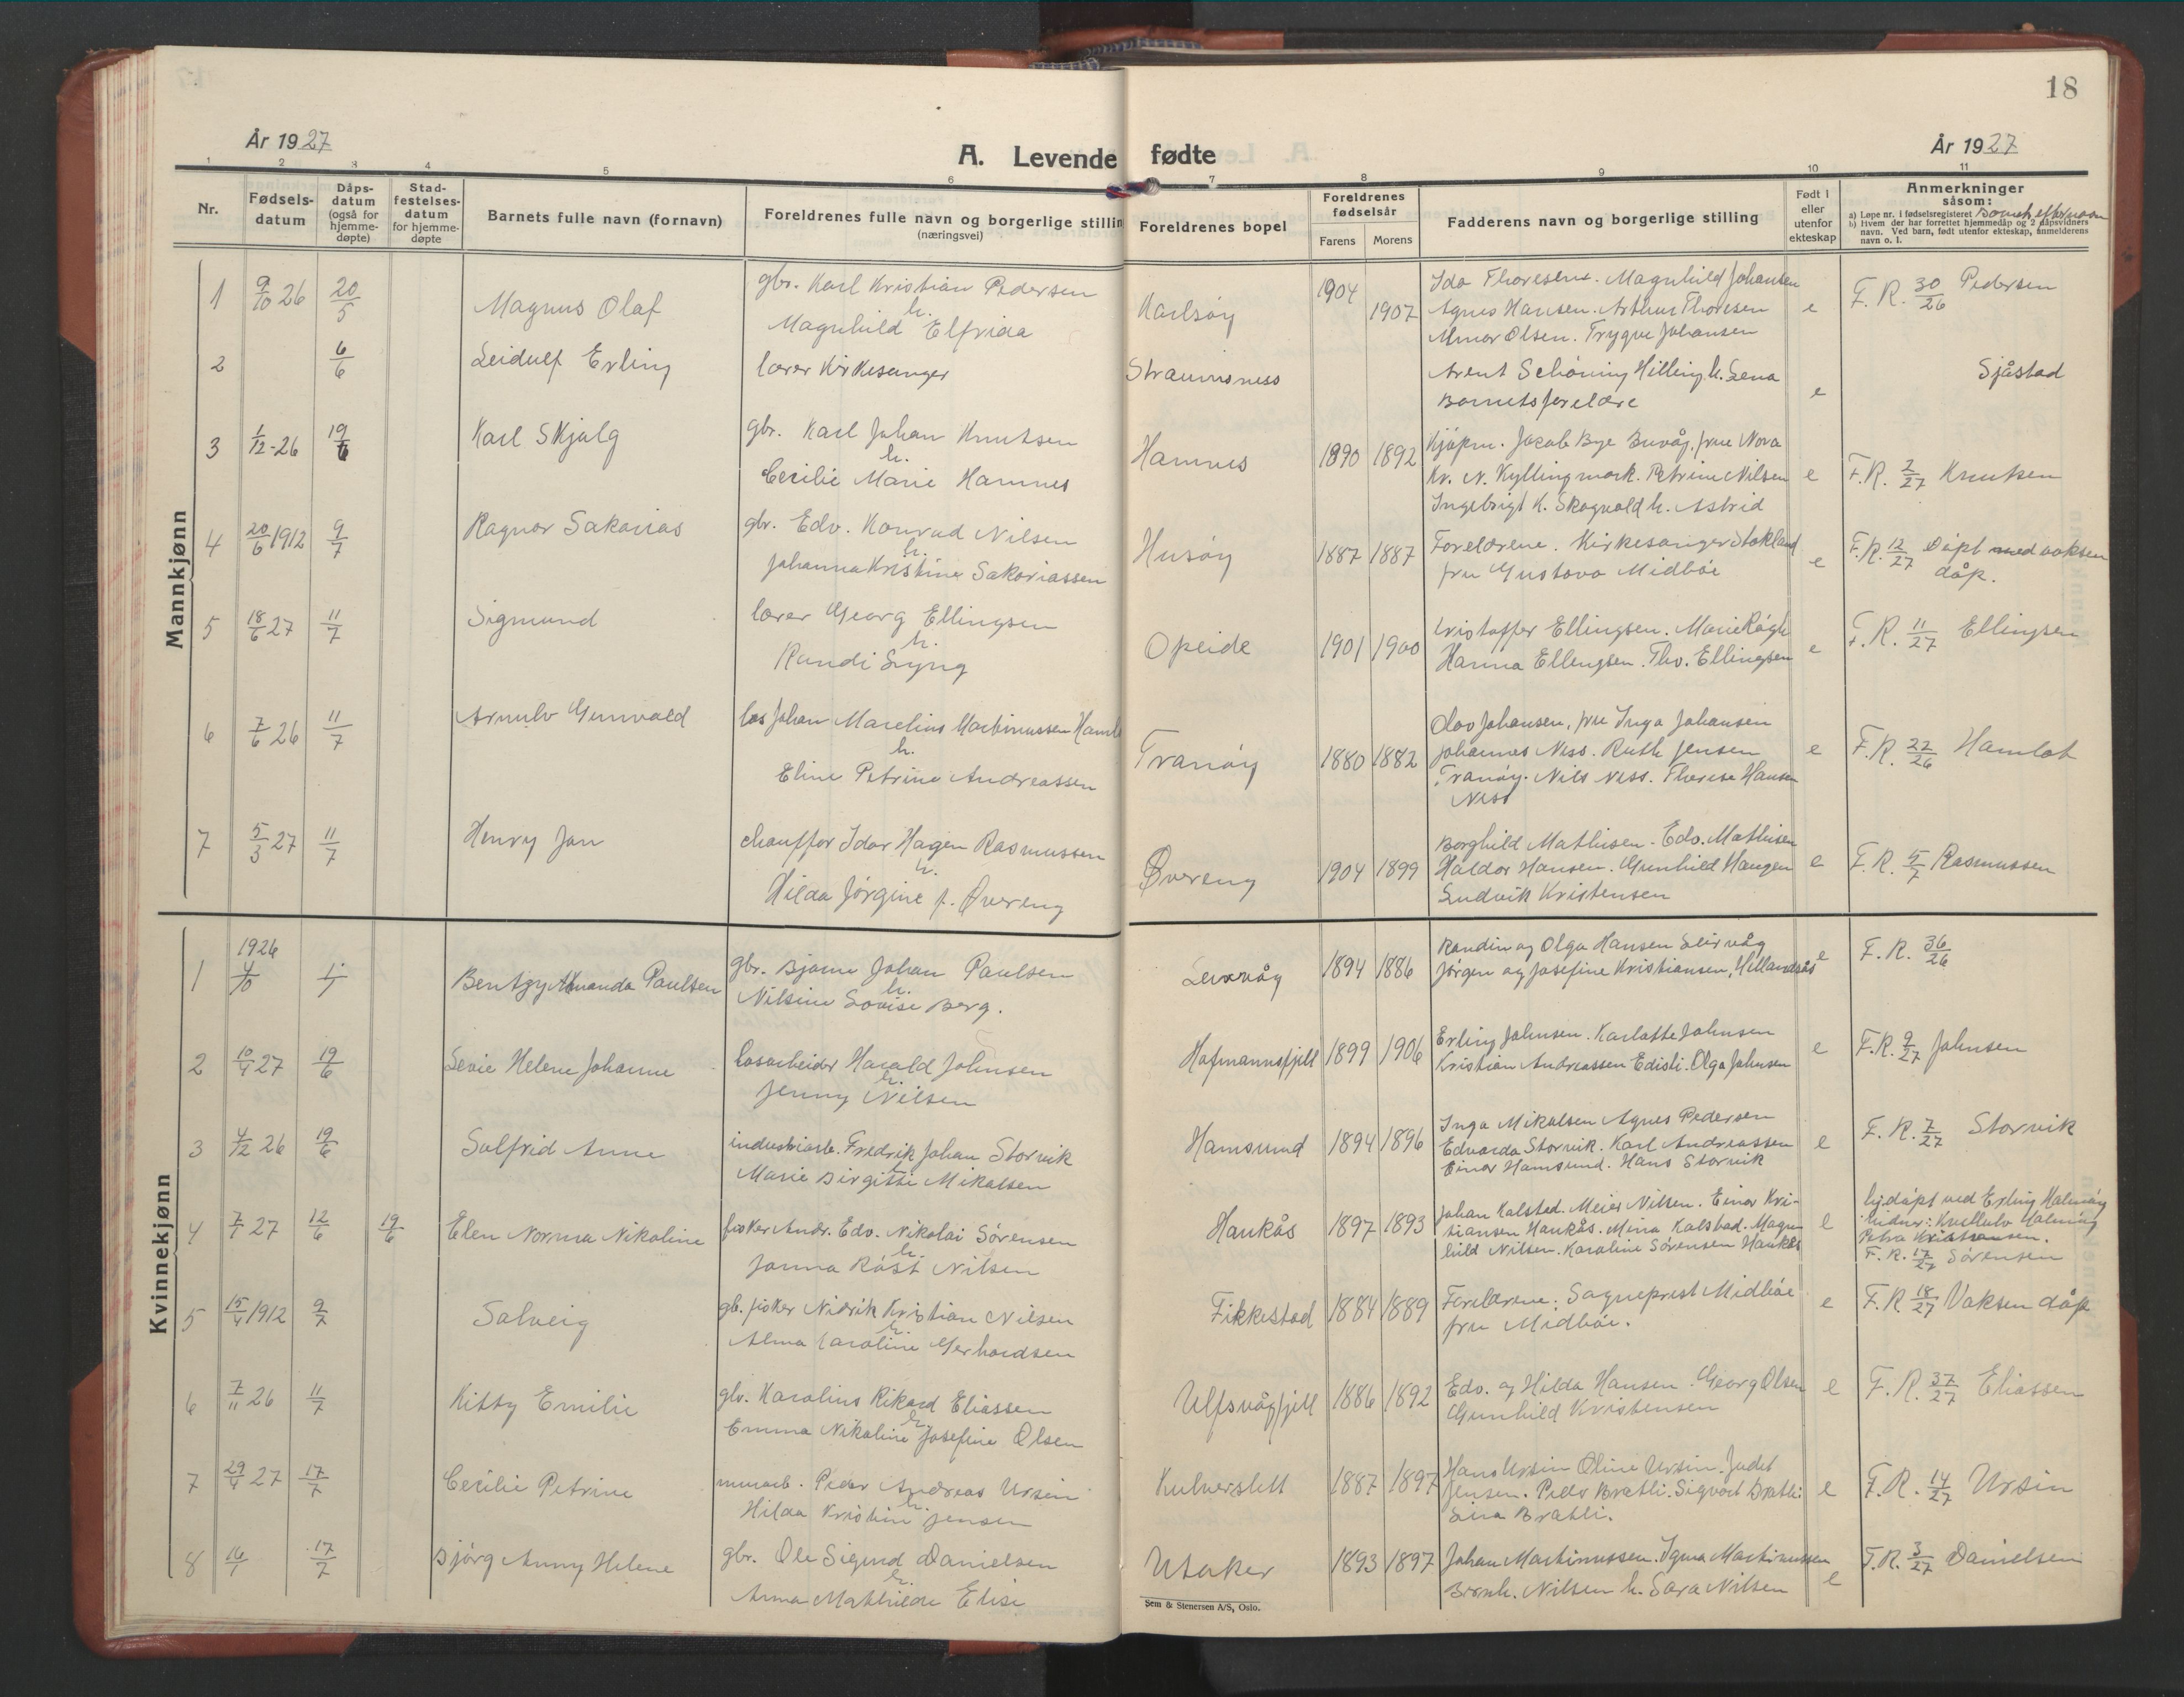 18
År 1927
A. Levende fødte
År 1927
1 2 3 4 5 6 7 8 9 10 11
Nr.
Fødsels-
datum
Dåps-
datum
(også for
hjemme-
døpte)
Stad-
festelses-
datum
for hjemme-
døpte
Barnets fulle navn (fornavn)
Foreldrenes fulle navn og borgerlige stillin
(næringsvei)
Foreldrenes bopel
Foreldrenes
fødselsår
Farens Morens
Fadderens navn og borgerlige stilling
Født i
eller
utenfor
ekteskap
Anmerkninger
såsom:
a) Løpe nr. i fødselsregisteret
b) Hvem der har forrettet hjemmedåp og 2 dåpsvidners
navn. Ved barn, født utenfor ekteskap, anmelderens
navn o. l.
Mannkjønn
1 9/10 26 20/5 Magnus Olaf
gbr. Karl Kristian Pedersen
h.
Magnhild Elfrida
Karlsøy 1904 1907
Ida Thoresen. Magnhild Johansen
Agnes Hansen. Arthur Thoresen
Almar Olsen. Trygve Johansen
e F. R. 30/26 Pedersen
2 6/6 Leidulf Erling
lærer Kirkesanger
Straumsness
Arent Schöning Hilling h. Lena
Barnets foreldre
e Sjåstad
3 1/12-26 19/6 Karl Skjalg
gbr. Karl Johan Knutsen
h.
Cecilie Marie Hamnes
Hamnes 1890 1892
Kjøpm. Jacob Bye Buvåg, frue Nora
Kr. N. Kyllingmark. Petrine Nilsen
Ingebrigt K. Skogvold h. Astrid
e F.R. 2/27 Knutsen
4 20/6 1912 9/7 Ragnar Sakarias
gbr. Edv. Konrad Nilsen
h.
Johanna Kristine Sakariassen
Husøy 1887 1887
Foreldrene. Kirkesanger Stokland
fru Gustava Midböe
e F.R. 12/27 Döpt med voksen
dåp.
5 18/6 27 11/7 Sigmund
lærer Georg Ellingsen
h.
Randi Lyng
Opeide 1901 1900
Kristoffer Ellingsen. Marie Rögh
Hanna Ellingsen. Thv. Ellingsen
e F.R. 11/27 Ellingsen
6 7/6 26 11/7 Arnulv Gunvald
los Johan Marelius Martinussen Haml
h.
Eline Petrine Andreassen
Tranøy 1880 1882
Olav Johansen, fru Inga Johansen
Johannes Ness. Ruth Jensen
Tranøy. Nils Ness. Therese Hansen
Ness
e F.R. 22/26 Hamlot
7 5/3 27 11/7 Henry Jan
chauffør Idar Hagen Rasmussen
h.
Hilda Jörgine f. Øvereng
Øvereng 1904 1899
Borghild Mathisen. Edv. Mathisen
Haldor Hansen. Gunhild Haugen
Ludvik Kristensen
e F. R. 5/7 Rasmussen
Kvinnekjønn
1926
1 4/10 1/1 Bentzy Amanda Paulsen
gbr. Bjarne Johan Paulsen
h.
Nilsine Lovise Berg.
Leirvåg 1894 1886
Randin og Olga Hansen Leirvåg
Jørgen og Josefine Kristiansen,
e F. R. 36/26
2 10/4 27 19/6 Levie Helene Johanne
losarbeider Harald Johnsen
h.
Jenny Nilsen
Hofmannsfjell 1899 1906
Erling Johnsen. Karlotte Johnsen
Kristian Andreassen Edisli. Olga Johnsen
e F.R. 9/27 Johnsen
3 4/12 26 19/6 Solfrid Anne
industriarb. Fredrik Johan Storvik
h.
Marie Birgitte Mikalsen
Hamsund 1894 1896
Inga Mikalsen Agnes Pedersen
Edvarda Storvik. Karl Andreassen
Einar Hamsund. Hans Storvik
e F. R. 7/27 Storvik
4 7/1 27 12/6 19/6 Elen Norma Nikoline
fisker Andr. Edv. Nikolai Sørensen
h.
Janna Röst Nilsen
Haukås 1897 1893
Johan Kalstad. Meier Nilsen. Einar Kri-
stiansen Haukås. Mina Kalstad. Magn
hild Nilsen. Karoline Sørensen Haukås
e hj.döpt ved Erling Halmøy
Petra Kristiansen.
F. R. 17/27 Sörensen
5 15/4 1912 9/7 Solveig
gb. fisker Nidrik Kristian Nilsen
h.
Alma Caroline Gerhardsen
Fikkestad 1884 1889
Foreldrene; Sogneprest Midböe
fru Midböe.
e F.R 18/27 Voksen dåp
6 7/11 26 11/7 Kitty Emilie
gbr. Karolius Rikard Eliassen
h.
Emma Nikoline Josefine Olsen
Ulfsvågfjell 1886 1892
Edv. og Hilda Hansen. Georg Olsen
Gunhild Kristensen
e F. R. 37/27 Eliassen
7 29/4 27 17/7 Cecilie Petrine
murarb. Peder Andreas Ursin
h.
Hilda Kristine Jensen
Kulverslett 1887 1897
Hans Ursin Oline Ursin. Judit
Jensen. Peder Bratli. Sigvart Bratli
Lina Bratli.
e F.R. 14/27 Ursin
8 16/1 17/7 Bjørg Anny Helene
gbr. Ole Sigurd Danielsen
h.
Anna Mathilde Elise
Utaker 1893 1897
Johan Martinussen. Igna Martinussen
Bernh. Nilsen h. Sara Nilsen
e F.R. 3/27 Danielsen
Sem & Stenersen A/S, Oslo.